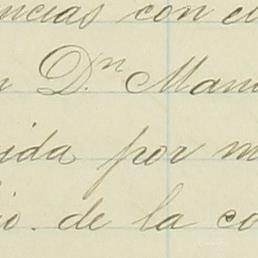 ncias con el
n Dⁿ. Man
ida por m
io. de la co